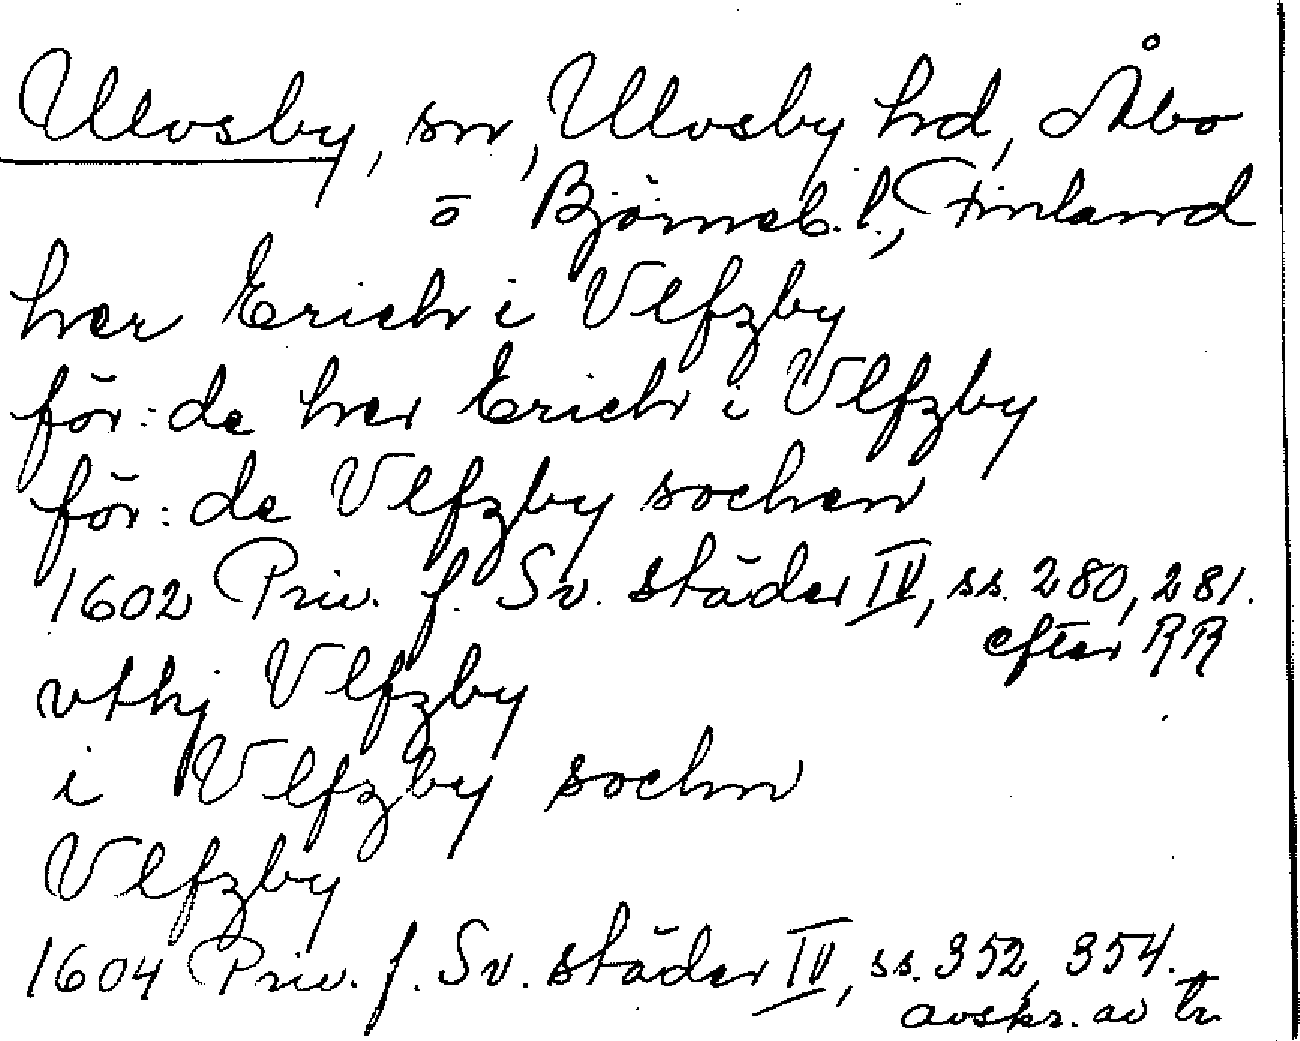 Ulvsby, sn, Ulvsby hd, Åbo
o Björneb. l., Finland
her Erich i Vlfzby
för: de her Erich i Vlfzby
för: de Vlfzby sochen
1602 Priv. f. Sv. städer IV, ss. 280, 281.
efter RR
vthj Vlfzby
i Vlfzby sochn
Vlfzby
1604 Priv. f. Sv. städer IV, ss. 352, 354.
avskr. av tr.